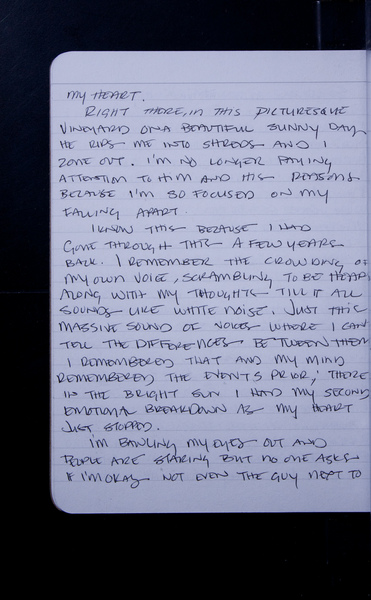 MY HEART.
RIGHT THERE, IN THIS PICTURESQUE
VINEYARD ON A BEAUTIFUL SUNNY DAY
HE RIPS ME INTO SHREDS AND I
ZONE OUT. I'M NO LONGER PAYING
ATTENTION TO HIM AND HIS REASONS
BECAUSE I'M SO FOCUSED ON MY
FALLING APART.
I KNOW THIS BECAUSE I HAD
GONE THROUGH THIS A FEW YEARS
BACK. I REMEMBER THE CROWDING OF
MY OWN VOICE, SCRAMBLING TO BE HEARD
ALONG WITH MY THOUGHTS TILL IT ALL
SOUNDS LIKE WHITE NOISE. JUST THIS
MASSIVE SOUND OF VOICES WHERE I CAN'T
TELL THE DIFFERENCES BETWEEN THEM
I REMEMBERED THAT AND MY MIND
REMEMBERED THE EVENTS PRIOR; THERE
IN THE BRIGHT SUN I HAD MY SECOND
EMOTIONAL BREAKDOWN AS MY HEART
JUST STOPPED.
I'M BAWLING MY EYES OUT AND
PEOPLE ARE STARING BUT NO ONE ASKS
IF I'M OKAY NOT EVEN THE GUY NEXT TO